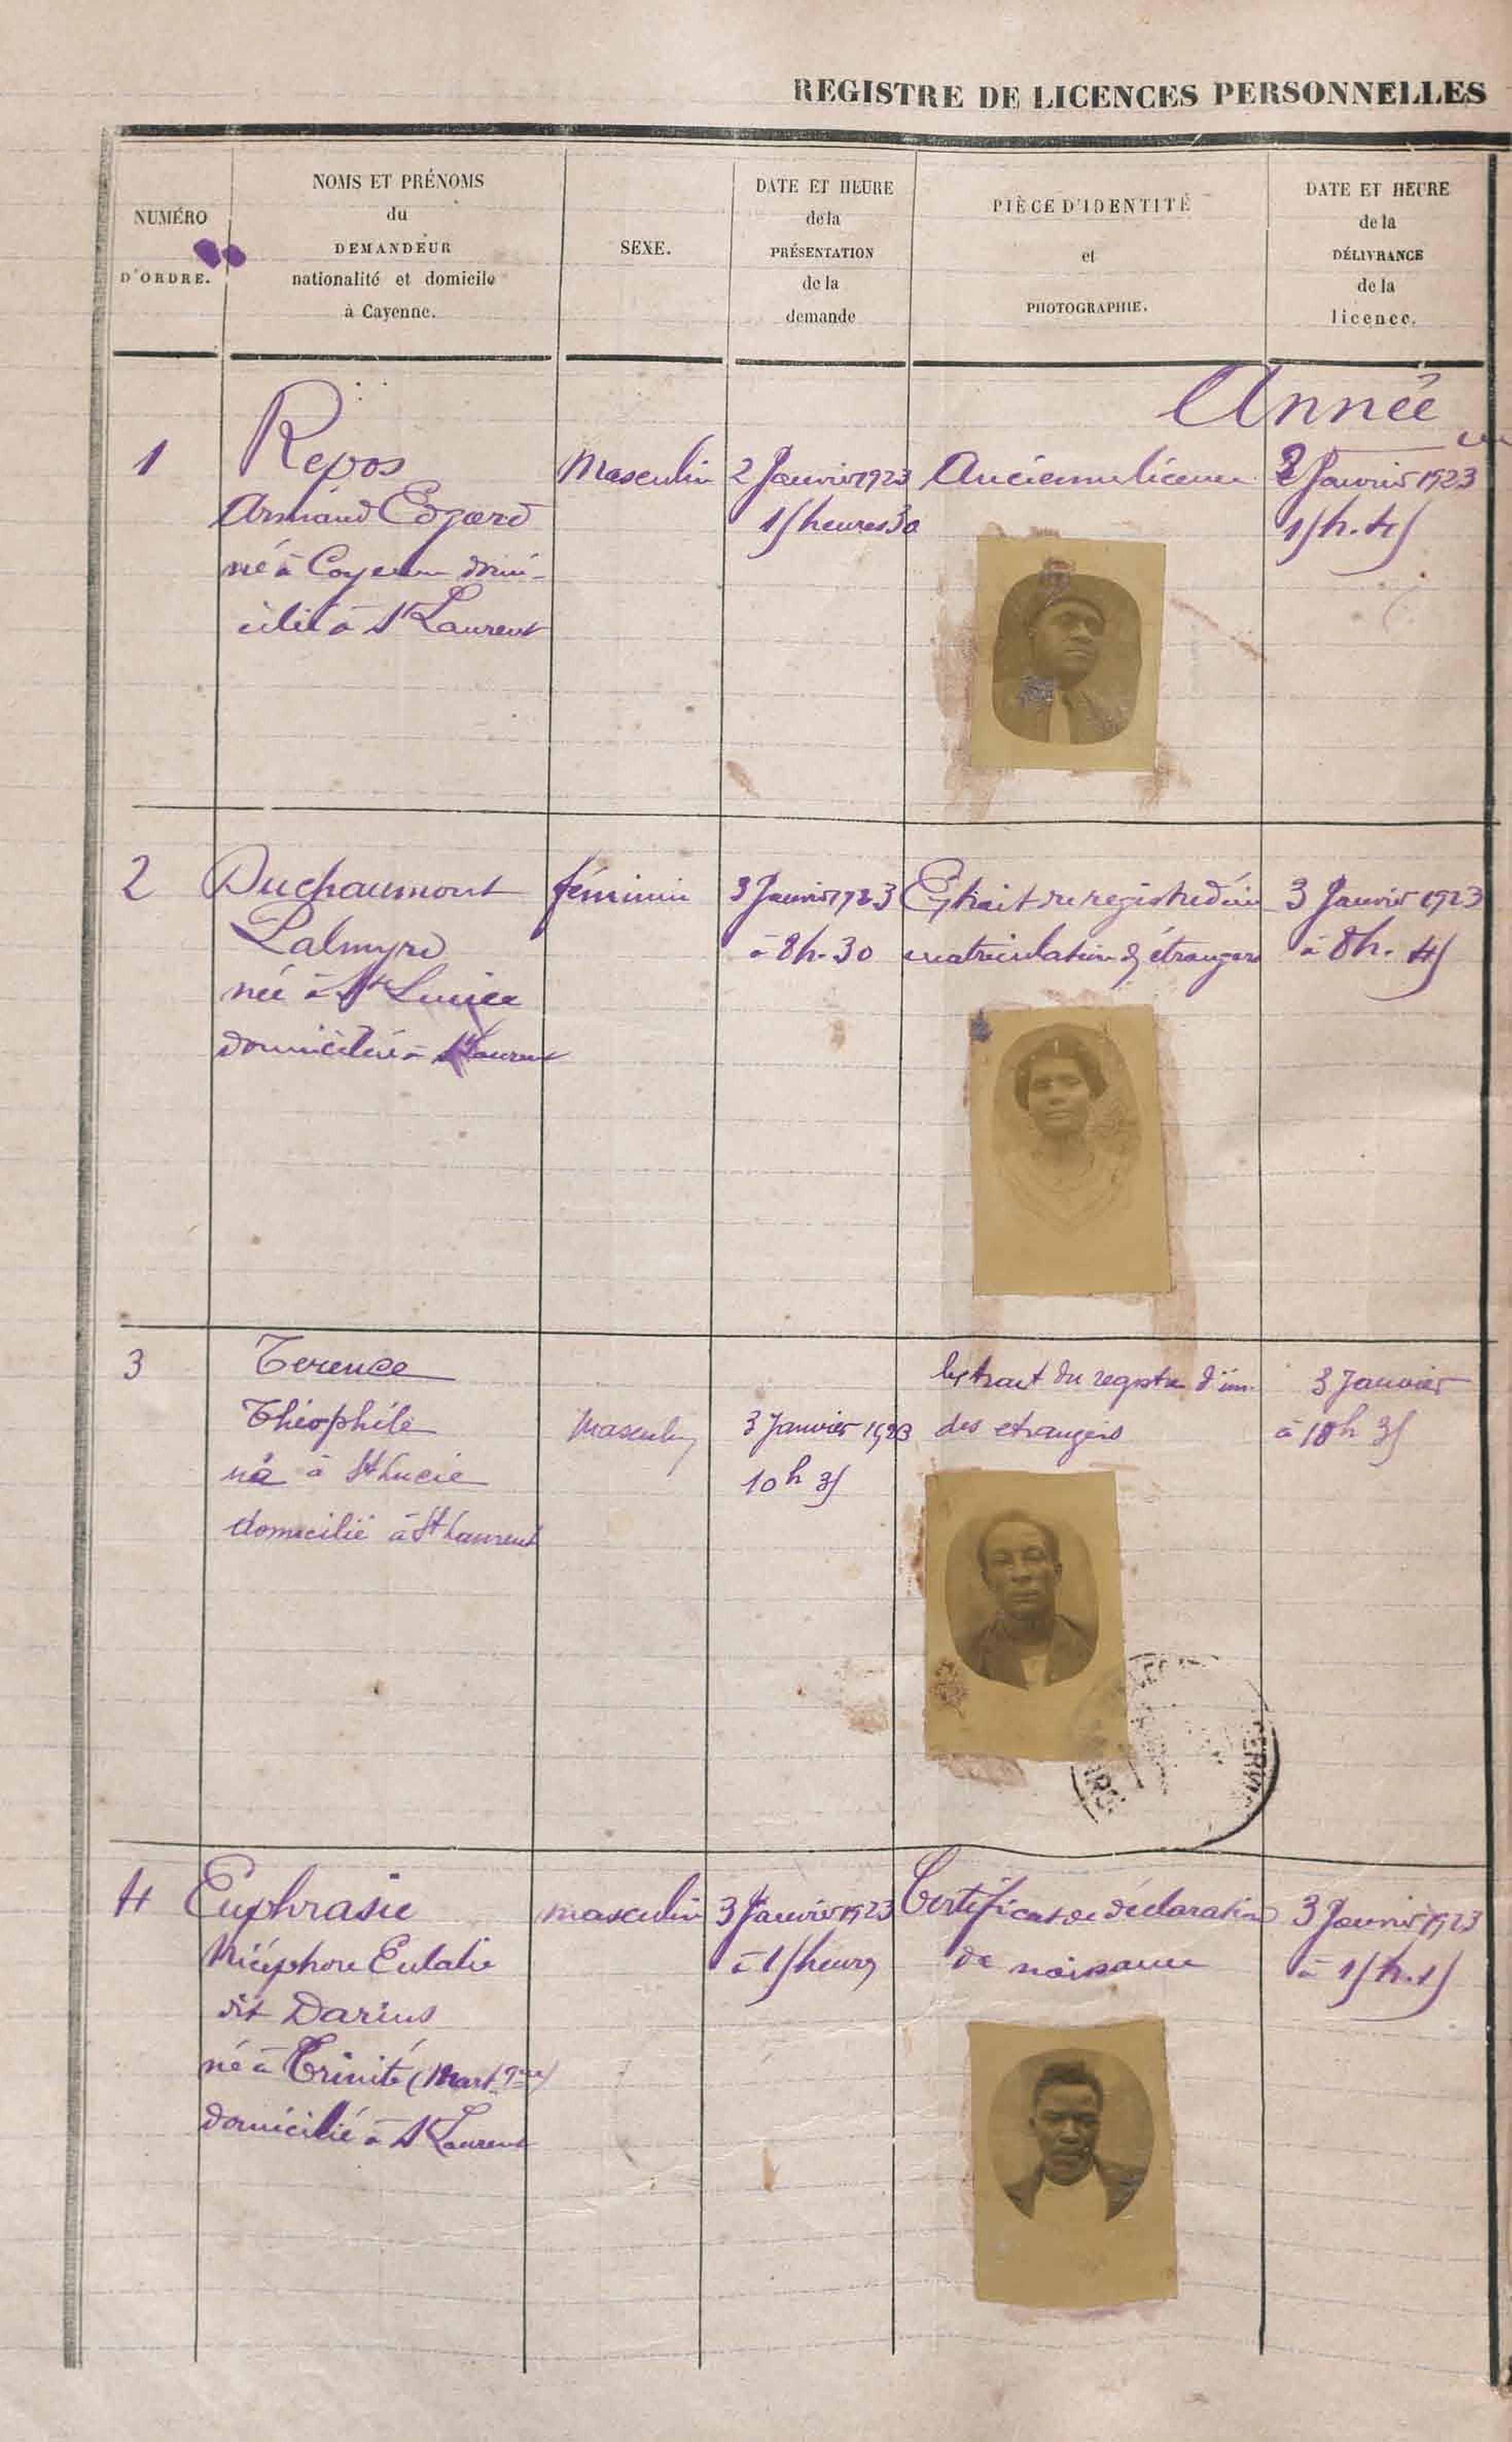 REGISTRE DE LICENCES PERSONNELLES
NUMÉRO
D'ORDRE.
NOMS ET PRÉNOMS
du
DEMANDEUR
nationalité et domicile
à Cayenne.
SEXE.
DATE ET HEURE
de la
PRÉSENTATION
de la
demande
PIÈCE D'IDENTITÉ
et
PHOTOGRAPHIE.
DATE ET HEURE
de la
DÉLIVRANCE
de la
licence.
Année
1
Repos
Armand Edgard
né à Cayenne domi-
cilié à St Laurent
Masculin
2 Janvier 1923
15 heures 30
Ancienne licence
2 Janvier 1923
15 h. 45
2
Duchaumont
Palmyre
née à Ste Lucie
domiciliée à St Laurent
féminin
3 Janvier 1923
à 8h. 30
Extrait du registre d'im
matriculation d étrangers
3 Janvier 1923
à 8h. 45
3
Terence
Théophile
né à Ste Lucie
domicilié à St Laurent
Masculin
3 Janvier 1923
10 h 35
Extrait du registre d'im.
des etrangers
3 Janvier
à 10h 35
4
Euphrasie
Nicéphore Eulalie
dit Darius
né à Trinité (Mart que)
domicilié à St Laurent
masculin
3 Janvier 1923
à 15 heures
Certificat de déclaration
de naissance
3 Janvier 1923
à 15 h. 15